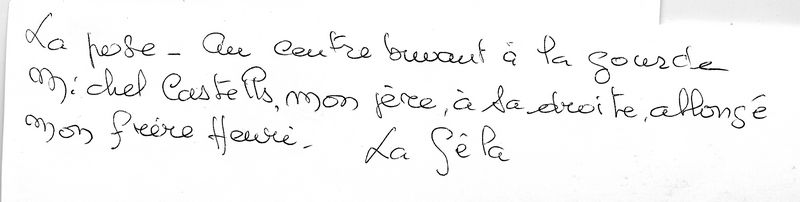 La pose - Au centre buvant à la gourde
Michel Castells, mon père, à sa droite, allongé
mon frère Henri - La Gêla